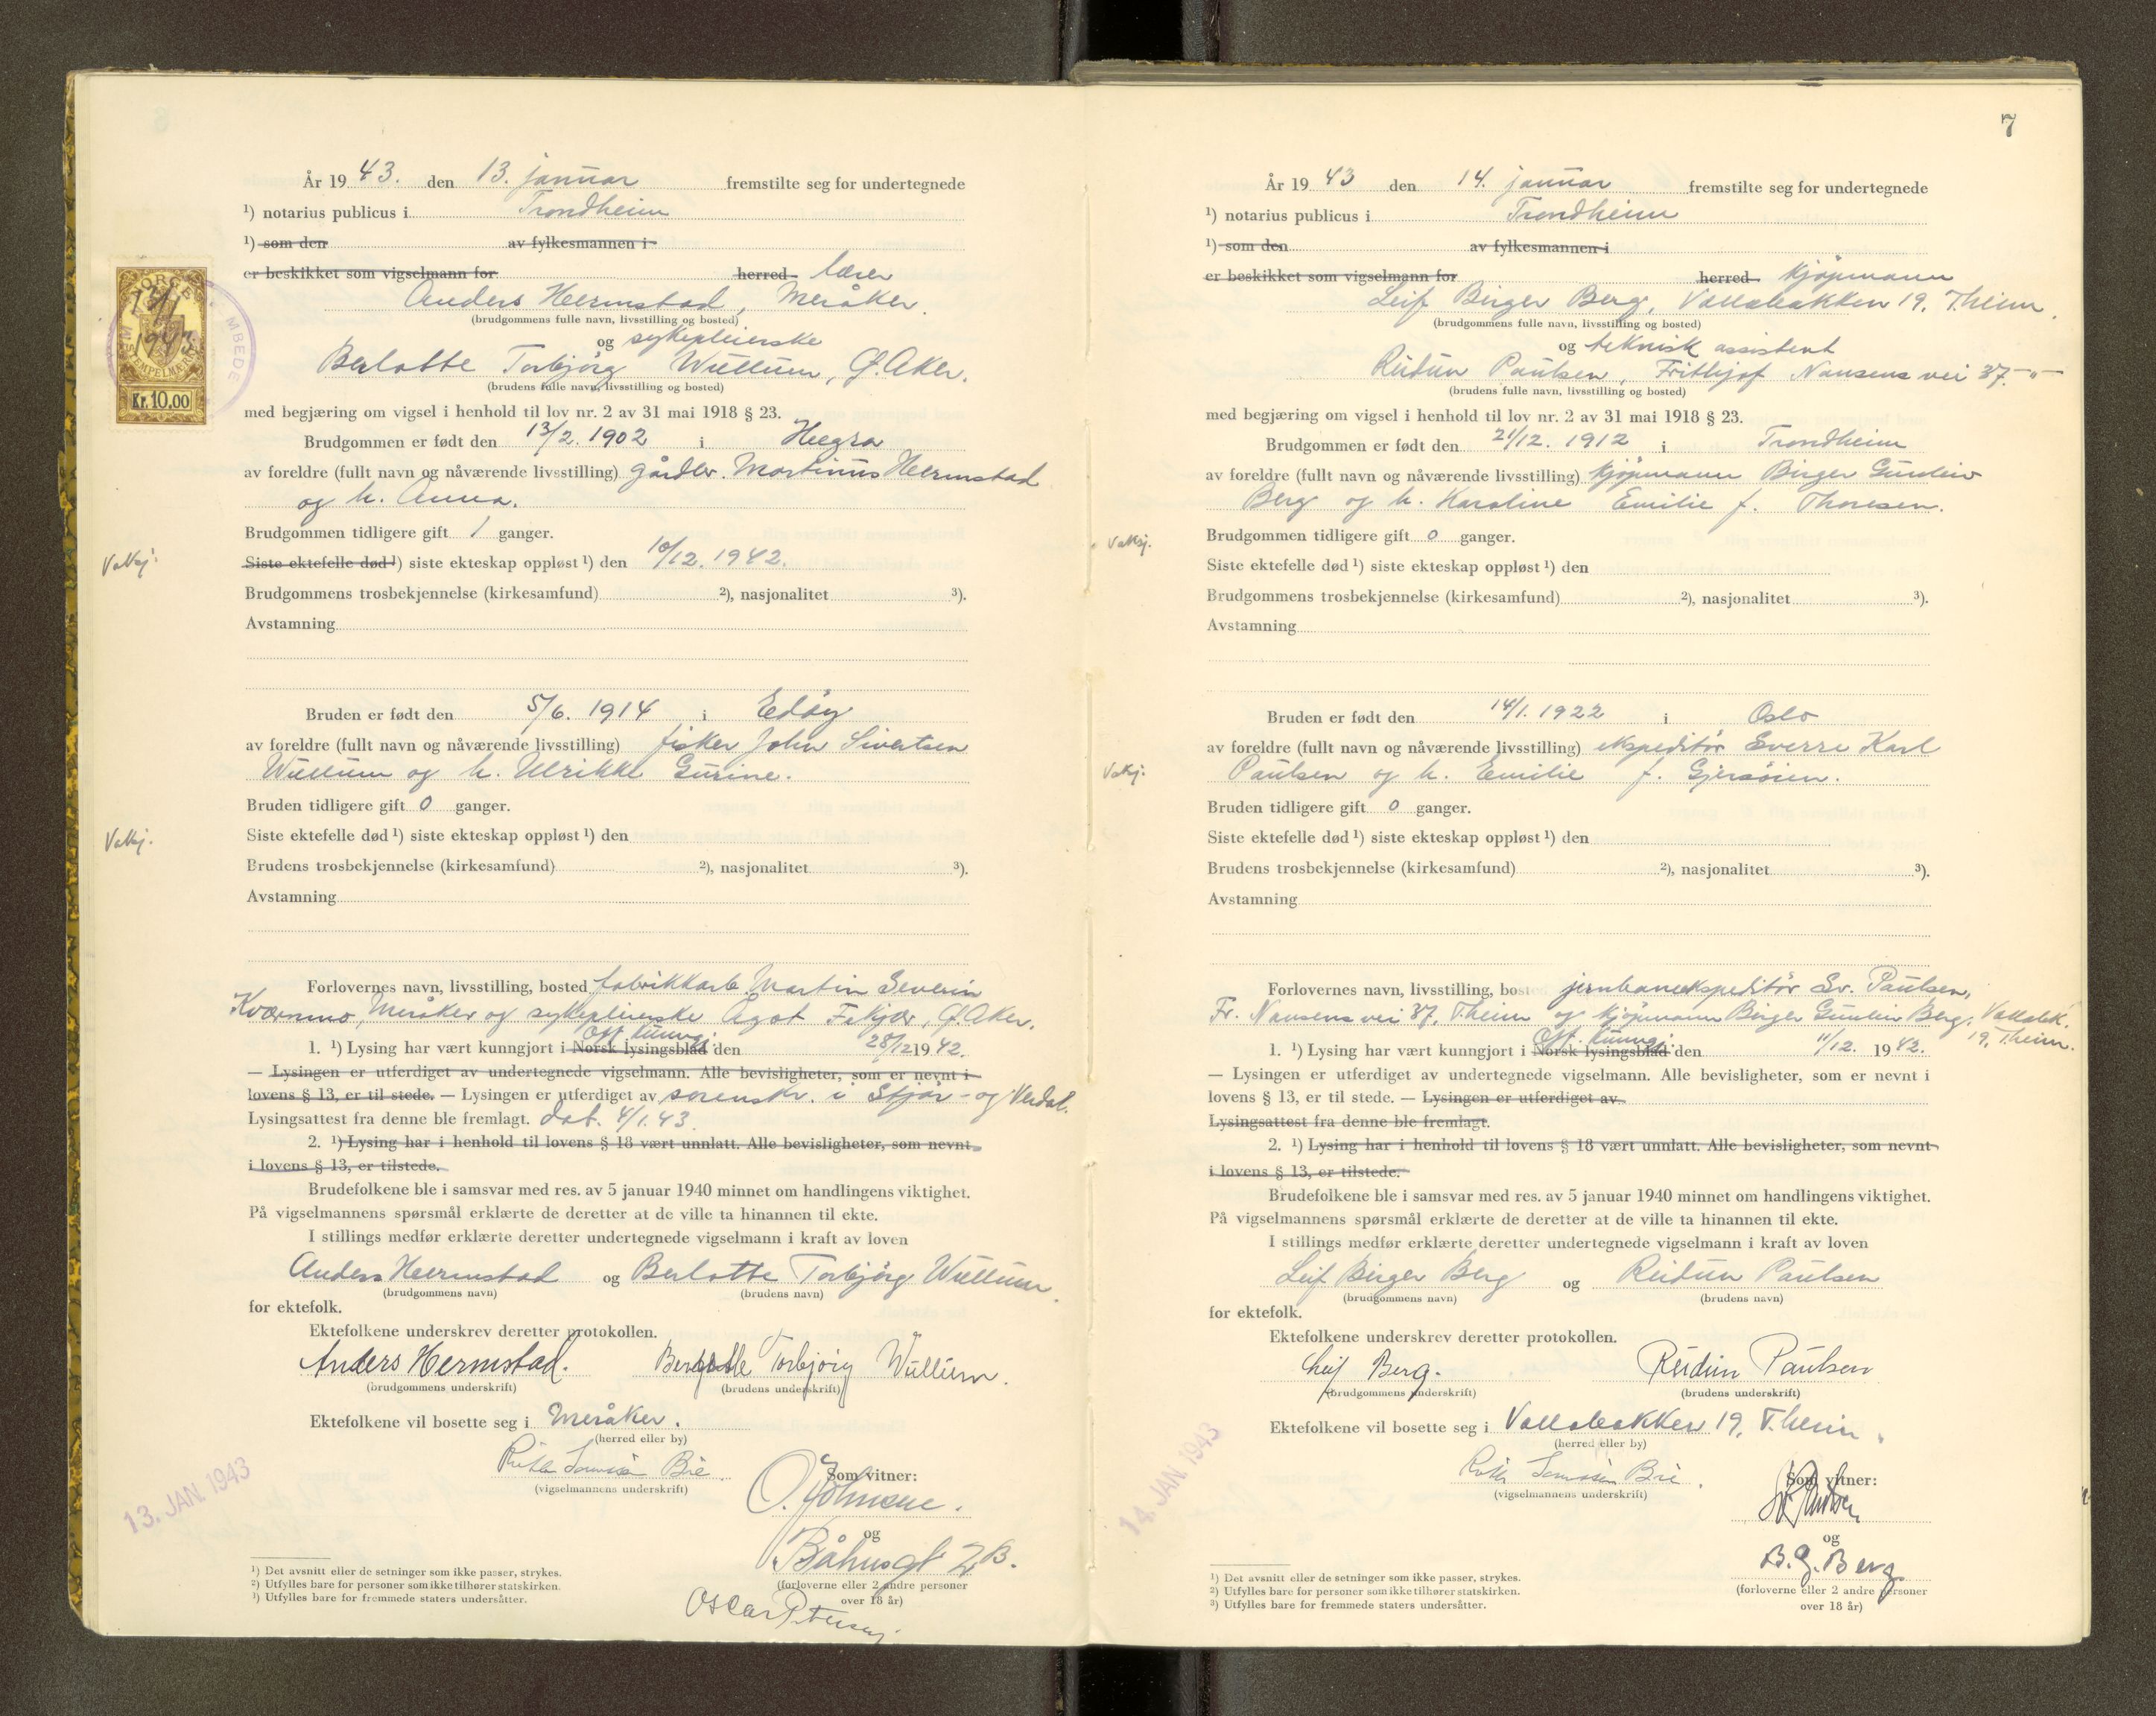 År 19 43. den 13. januar fremstilte seg for undertegnede
1) notarius publicus i Trondheim
1) som den av fylkesmannen i
er beskikket som vigselmann for herred lærer
Anders Hermstad, Meråker.
(brudgommens fulle navn, livsstilling og bosted)
og sykepleierske
Berlotte Torbjørg Wullum, Ø. Aker.
(brudens fulle navn, livsstilling og bosted)
NORGE
13/1
1943
STEMPELMÆRKE
Kr. 10,00
MBEDE
med begjæring om vigsel i henhold til lov nr. 2 av 31 mai 1918 § 23.
Brudgommen er født den 13/2. 1902 i Hegra
av foreldre (fullt navn og nåværende livsstilling) gårdbr. Martinus Hermstad
og h. Anna.
Brudgommen tidligere gift 1 ganger.
Vaksj.
Siste ektefelle død 1) siste ekteskap oppløst 1) den 10/12. 1942.
Brudgommens trosbekjennelse (kirkesamfund) 2), nasjonalitet 3).
Avstamning
Bruden er født den 5/6. 1914 i Edøy
av foreldre (fullt navn og nåværende livsstilling) fisker John Sivertsen
Wullum og h. Ulrikke Gurine.
Bruden tidligere gift 0 ganger.
Vaksj.
Siste ektefelle død 1) siste ekteskap oppløst 1) den
Brudens trosbekjennelse (kirkesamfund) 2), nasjonalitet 3).
Avstamning
Forlovernes navn, livsstilling, bosted fabrikkarb. Martin Severin
Kværnmo, Meråker og sykepleierske Ågot Fikjær, Ø. Aker.
off. kunngj.
1. 1) Lysing har vært kunngjort i Norsk lysingsblad den 28/12 1942.
— Lysingen er utferdiget av undertegnede vigselmann. Alle bevisligheter, som er nevnt i
lovens § 13, er til stede. — Lysingen er utferdiget av sorenskr. i Stjør- og Verdal.
Lysingsattest fra denne ble fremlagt. dat. 4/1.43.
2. 1) Lysing har i henhold til lovens § 18 vært unnlatt. Alle bevisligheter, som nevnt
i lovens § 13, er tilstede.
Brudefolkene ble i samsvar med res. av 5 januar 1940 minnet om handlingens viktighet.
På vigselmannens spørsmål erklærte de deretter at de ville ta hinannen til ekte.
I stillings medfør erklærte deretter undertegnede vigselmann i kraft av loven
Anders Hermstad og Berlotte Torbjørg Wullum.
(brudgommens navn) (brudens navn)
for ektefolk.
Ektefolkene underskrev deretter protokollen.
Anders Hermstad. Berlotte Torbjørg Wullum.
(brudgommens underskrift) (brudens underskrift)
Ektefolkene vil bosette seg i Meråker.
(herred eller by)
Bie.
(vigselmannens underskrift)
13. JAN. 1943
Som vitner:
O. Johnsen.
og
Båhusgt 2B.
(forloverne eller 2 andre personer
over 18 år)
Oscar Petersen
1) Det avsnitt eller de setninger som ikke passer, strykes.
2) Utfylles bare for personer som ikke tilhører statskirken.
3) Utfylles bare for fremmede staters undersåtter.
7
År 19 43 den 14. januar fremstilte seg for undertegnede
1) notarius publicus i Trondheim
1) som den av fylkesmannen i
er beskikket som vigselmann for herred kjøpmann
Leif Birger Berg, Vollabakken 19, T.heim.
(brudgommens fulle navn, livsstilling og bosted)
og teknisk assistent
Reidun Paulsen, Frithjof Nansens vei 37. -"-
(brudens fulle navn, livsstilling og bosted)
med begjæring om vigsel i henhold til lov nr. 2 av 31 mai 1918 § 23.
Brudgommen er født den 21/12. 1912 i Trondheim
av foreldre (fullt navn og nåværende livsstilling) kjøpmann Birger Gunleiv
Berg og h. Karoline Emilie f. Thoresen.
Brudgommen tidligere gift 0 ganger.
Vaksj.
Siste ektefelle død 1) siste ekteskap oppløst 1) den
Brudgommens trosbekjennelse (kirkesamfund) 2), nasjonalitet 3).
Avstamning
Bruden er født den 14/1. 1922 i Oslo
av foreldre (fullt navn og nåværende livsstilling) ekspeditør Sverre Karl
Paulsen og h. Emilie f. Gjersøien.
Vaksj.
Bruden tidligere gift 0 ganger.
Siste ektefelle død 1) siste ekteskap oppløst 1) den
Brudens trosbekjennelse (kirkesamfund) 2), nasjonalitet 3).
Avstamning
Forlovernes navn, livsstilling, bosted jernbaneekspeditør Sv. Paulsen,
Fr. Nansens vei 37, T.heim og kjøpmann Birger Gunleiv Berg, Vollabk.
19, T.heim.
off. kunngj.
1. 1) Lysing har vært kunngjort i Norsk lysingsblad den 11/12. 1942.
— Lysingen er utferdiget av undertegnede vigselmann. Alle bevisligheter, som er nevnt i
lovens § 13, er til stede. — Lysingen er utferdiget av
Lysingsattest fra denne ble fremlagt.
2. 1) Lysing har i henhold til lovens § 18 vært unnlatt. Alle bevisligheter, som nevnt
i lovens § 13, er tilstede.
Brudefolkene ble i samsvar med res. av 5 januar 1940 minnet om handlingens viktighet.
På vigselmannens spørsmål erklærte de deretter at de ville ta hinannen til ekte.
I stillings medfør erklærte deretter undertegnede vigselmann i kraft av loven
Leif Birger Berg og Reidun Paulsen
(brudgommens navn) (brudens navn)
for ektefolk.
Ektefolkene underskrev deretter protokollen.
Leif Berg. Reidun Paulsen
(brudgommens underskrift) (brudens underskrift)
Ektefolkene vil bosette seg i Vollabakken 19, T.heim.
(herred eller by)
Bie.
(vigselmannens underskrift)
14. JAN. 1943
Som vitner:
Sv Paulsen
og
B. G. Berg
(forloverne eller 2 andre personer
over 18 år)
1) Det avsnitt eller de setninger som ikke passer, strykes.
2) Utfylles bare for personer som ikke tilhører statskirken.
3) Utfylles bare for fremmede staters undersåtter.